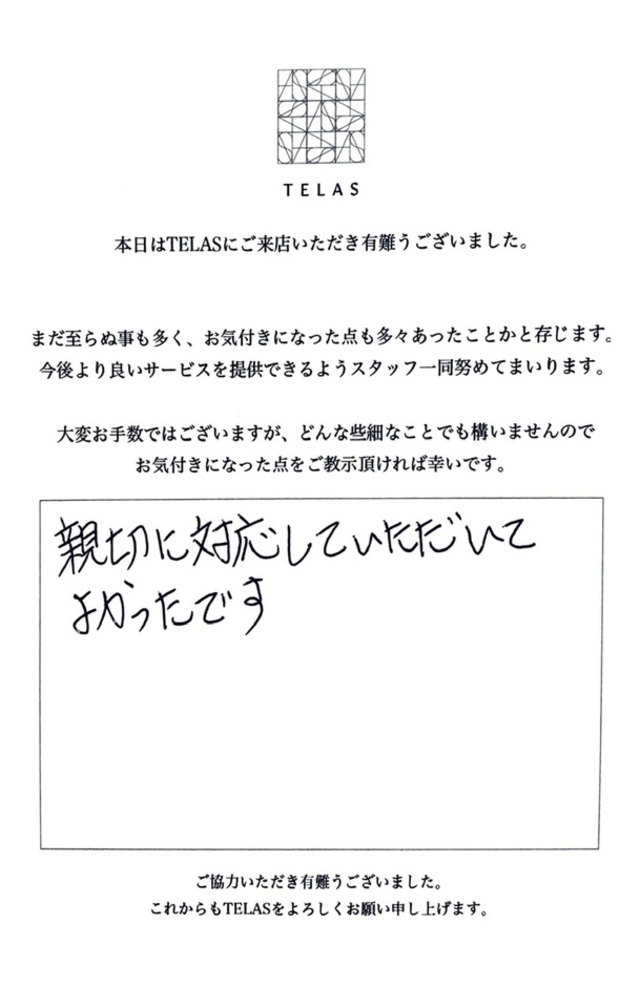 TELAS
本日はTELASにご来店いただき有難うございました。
まだ至らぬ事も多く、お気付きになった点も多々あったことかと存じます。
今後より良いサービスを提供できるようスタッフ一同努めてまいります。
大変お手数ではございますが、どんな些細なことでも構いませんので
お気付きになった点をご教示頂ければ幸いです。
親切に対応していただいて
よかったです
ご協力いただき有難うございました。
これからもTELASをよろしくお願い申し上げます。